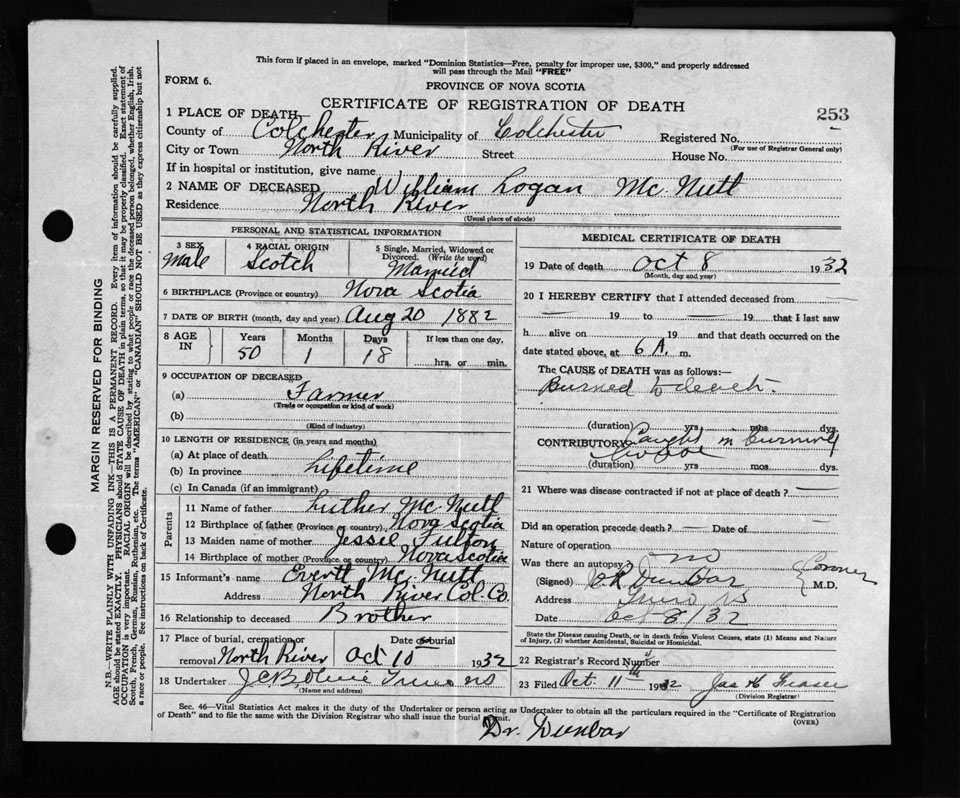 This form if placed in an envelope, marked "Dominion Statistics—Free, penalty for improper use, $300," and properly addressed
will pass through the Mail "FREE"
FORM 6.
PROVINCE OF NOVA SCOTIA
CERTIFICATE OF REGISTRATION OF DEATH
253
1 PLACE OF DEATH
County of Colchester Municipality of Colchester Registered No.
(For use of Registrar General only)
City or Town North River Street House No.
If in hospital or institution, give name
2 NAME OF DECEASED William Logan Mc.Nutt
Residence North River
(Usual place of abode)
PERSONAL AND STATISTICAL INFORMATION
3 SEX Male
4 RACIAL ORIGIN Scotch
5 Single, Married, Widowed or Divorced. (Write the word) Married
6 BIRTHPLACE (Province or country) Nova Scotia
7 DATE OF BIRTH (month, day and year) Aug 20 1882
8 AGE IN
Years Months Days If less than one day,
50 1 18 hrs. or min.
9 OCCUPATION OF DECEASED
(a) Farmer
(Trade or occupation or kind of work)
(b)
(Kind of industry)
10 LENGTH OF RESIDENCE (in years and months)
(a) At place of death
(b) In province Lifetime
(c) In Canada (if an immigrant)
Parents
11 Name of father Luther Mc.Nutt
12 Birthplace of father (Province or country) Nova Scotia
13 Maiden name of mother Jessie Fulton
14 Birthplace of mother (Province or country) Nova Scotia
15 Informant's name Evertt Mc.Nutt
Address North River Col. Co.
16 Relationship to deceased Brother
17 Place of burial, cremation or removal North River
Date of burial Oct 10 1932
18 Undertaker Truro NS
(Name and address)
MEDICAL CERTIFICATE OF DEATH
19 Date of death Oct 8 1932
(Month, day and year)
20 I HEREBY CERTIFY that I attended deceased from —
— 19 to — 19 that I last saw
h alive on 19 and that death occurred on the
date stated above, at 6 A. m.
The CAUSE of DEATH was as follows:—
Burned to death.
(duration) yrs mos dys.
CONTRIBUTORY Caught in burning
(duration) yrs mos dys.
21 Where was disease contracted if not at place of death? —
Did an operation precede death? — Date of —
Nature of operation
Was there an autopsy? no
(Signed) Dunbar Coroner M.D.
Address Truro NS
Date Oct 8/32
State the Disease causing Death, or in death from Violent Causes, state (1) Means and Nature
of Injury, (2) whether Accidental, Suicidal or Homicidal.
22 Registrar's Record Number 4
23 Filed Oct 11th 1932 Jas H Fraser
(Division Registrar)
Sec. 46—Vital Statistics Act makes it the duty of the Undertaker or person acting as Undertaker to obtain all the particulars required in the "Certificate of Registration
of Death" and to file the same with the Division Registrar who shall issue the burial permit.
(OVER)
Dr. Dunbar
MARGIN RESERVED FOR BINDING
N.B.—WRITE PLAINLY WITH UNFADING INK—THIS IS A PERMANENT RECORD. Every item of information should be carefully supplied.
AGE should be stated EXACTLY. PHYSICIANS should STATE CAUSE OF DEATH in plain terms, so that it may be properly classified. Exact statement of
OCCUPATION is very important. RACIAL ORIGIN will be described by stating to what people or race the deceased person belonged, whether English, Irish,
Scotch, French, German, Russian, Ruthenian, etc. The terms "AMERICAN" or "CANADIAN" SHOULD NOT BE USED as they express citizenship but not
a race or people. See instructions on back of Certificate.